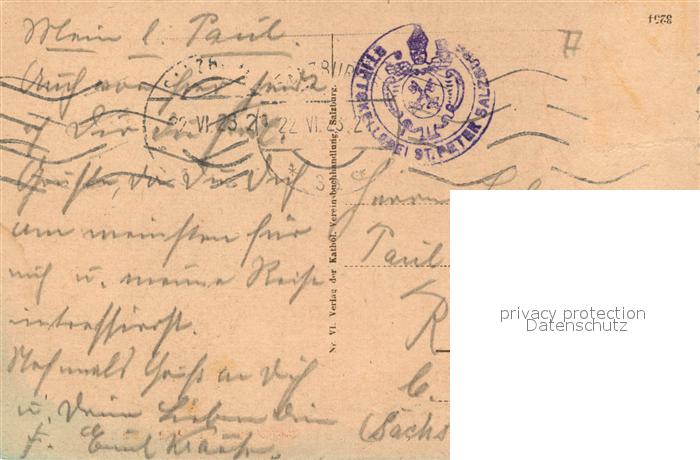 Mein l. Paul.
Auch von hier sende
ich Dir
Grüße, da Du Dich
am meisten für
mich u. meine Reise
interessierst.
Nochmals Gruß an Dich
u. Deine Lieben Dein
F. Emil Krause.
22 VI 23.2
22 VI 23.2
STIFTSKELLEREI ST. PETER SALZBURG
Nr VI. Verlag der Kathol. Vereinsbuchhandlung, Salzburg.
3294
Herrn
Paul
R
(Sachs
privacy protection
Datenschutz